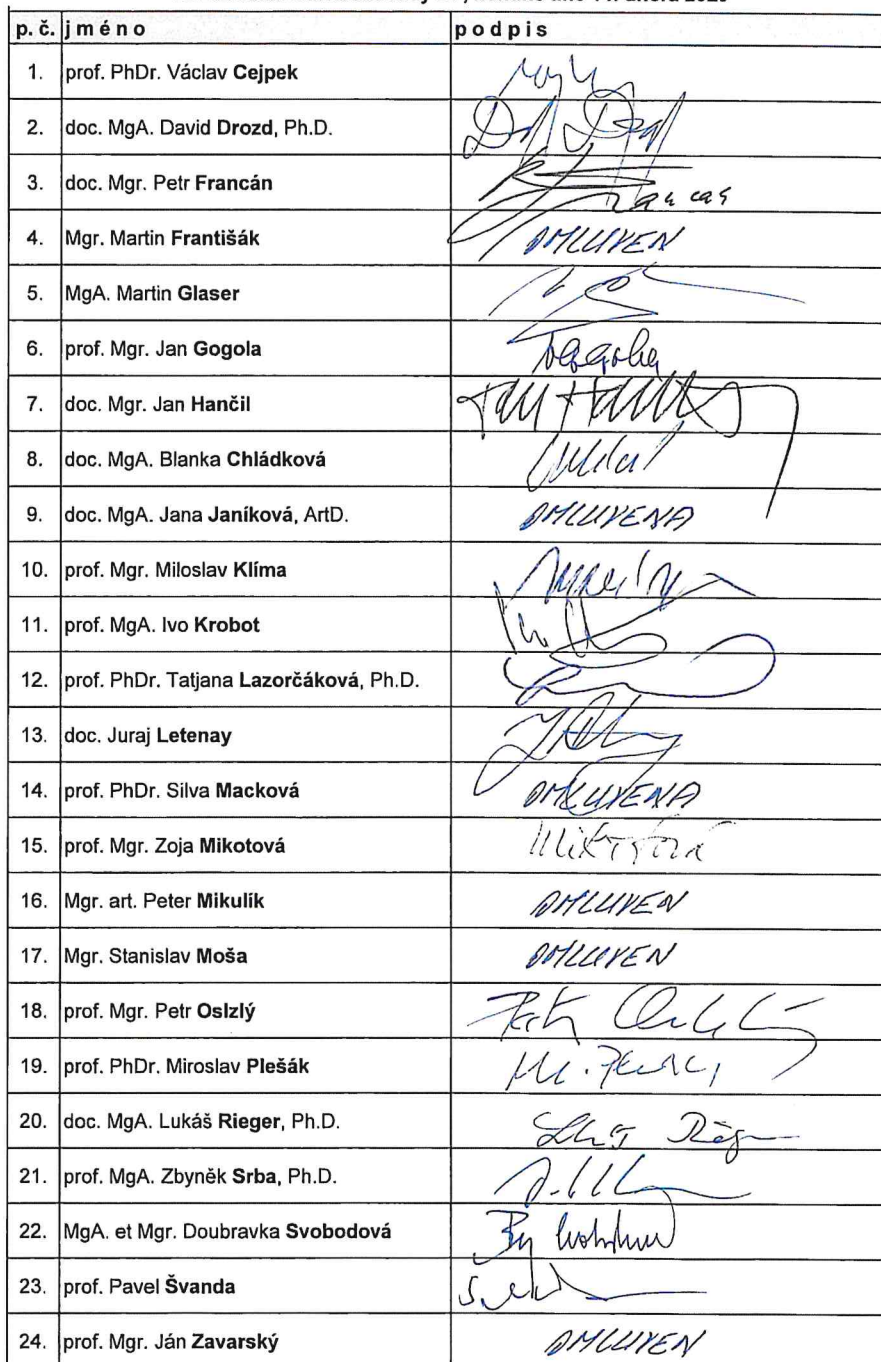 dne 14. února 2020
p. č. jméno podpis
1. prof. PhDr. Václav Cejpek
2. doc. MgA. David Drozd, Ph.D.
3. doc. Mgr. Petr Francán
4. Mgr. Martin Františák OMLUVEN
5. MgA. Martin Glaser
6. prof. Mgr. Jan Gogola
7. doc. Mgr. Jan Hančil
8. doc. MgA. Blanka Chládková
9. doc. MgA. Jana Janíková, ArtD. OMLUVENA
10. prof. Mgr. Miloslav Klíma
11. prof. MgA. Ivo Krobot
12. prof. PhDr. Tatjana Lazorčáková, Ph.D.
13. doc. Juraj Letenay
14. prof. PhDr. Silva Macková OMLUVENA
15. prof. Mgr. Zoja Mikotová Mikotová
16. Mgr. art. Peter Mikulík OMLUVEN
17. Mgr. Stanislav Moša OMLUVEN
18. prof. Mgr. Petr Oslzlý
19. prof. PhDr. Miroslav Plešák
20. doc. MgA. Lukáš Rieger, Ph.D.
21. prof. MgA. Zbyněk Srba, Ph.D.
22. MgA. et Mgr. Doubravka Svobodová
23. prof. Pavel Švanda
24. prof. Mgr. Ján Zavarský OMLUVEN